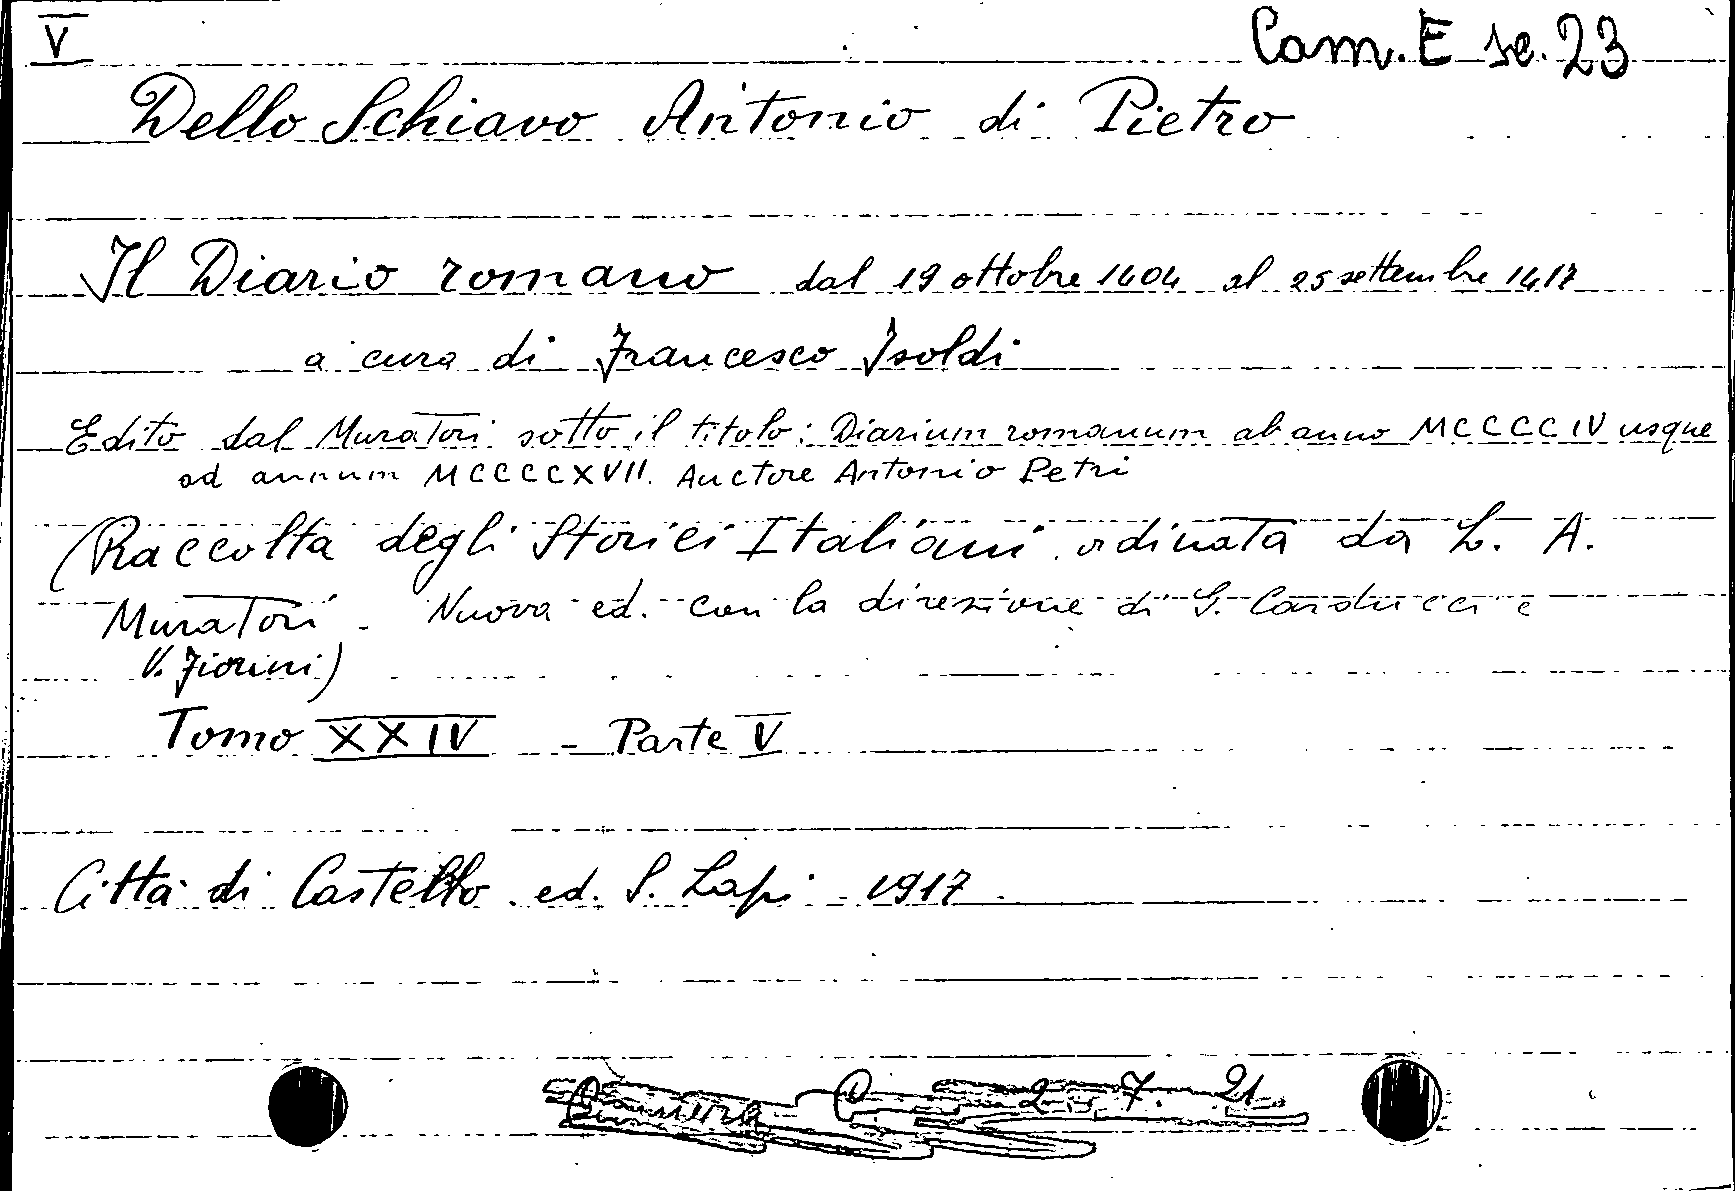 V
Cam. E sc. 23
Dello Schiavo Antonio di Pietro
Il Diario romano dal 19 ottobre 1404 al 25 settembre 1417
a cura di Francesco Isoldi
Edito dal Muratori sotto il titolo: Diarium romanum ab anno MCCCCIV usque
ad annum MCCCCXVII. Auctore Antonio Petri
(Raccolta degli Storici Italiani ordinata da L. A.
Muratori - Nuova ed. con la direzione di G. Carducci e
V. Fiorini)
Tomo XXIV - Parte V
Città di Castello ed. S. Lapi 1917
Camera C. 2. 7. 21